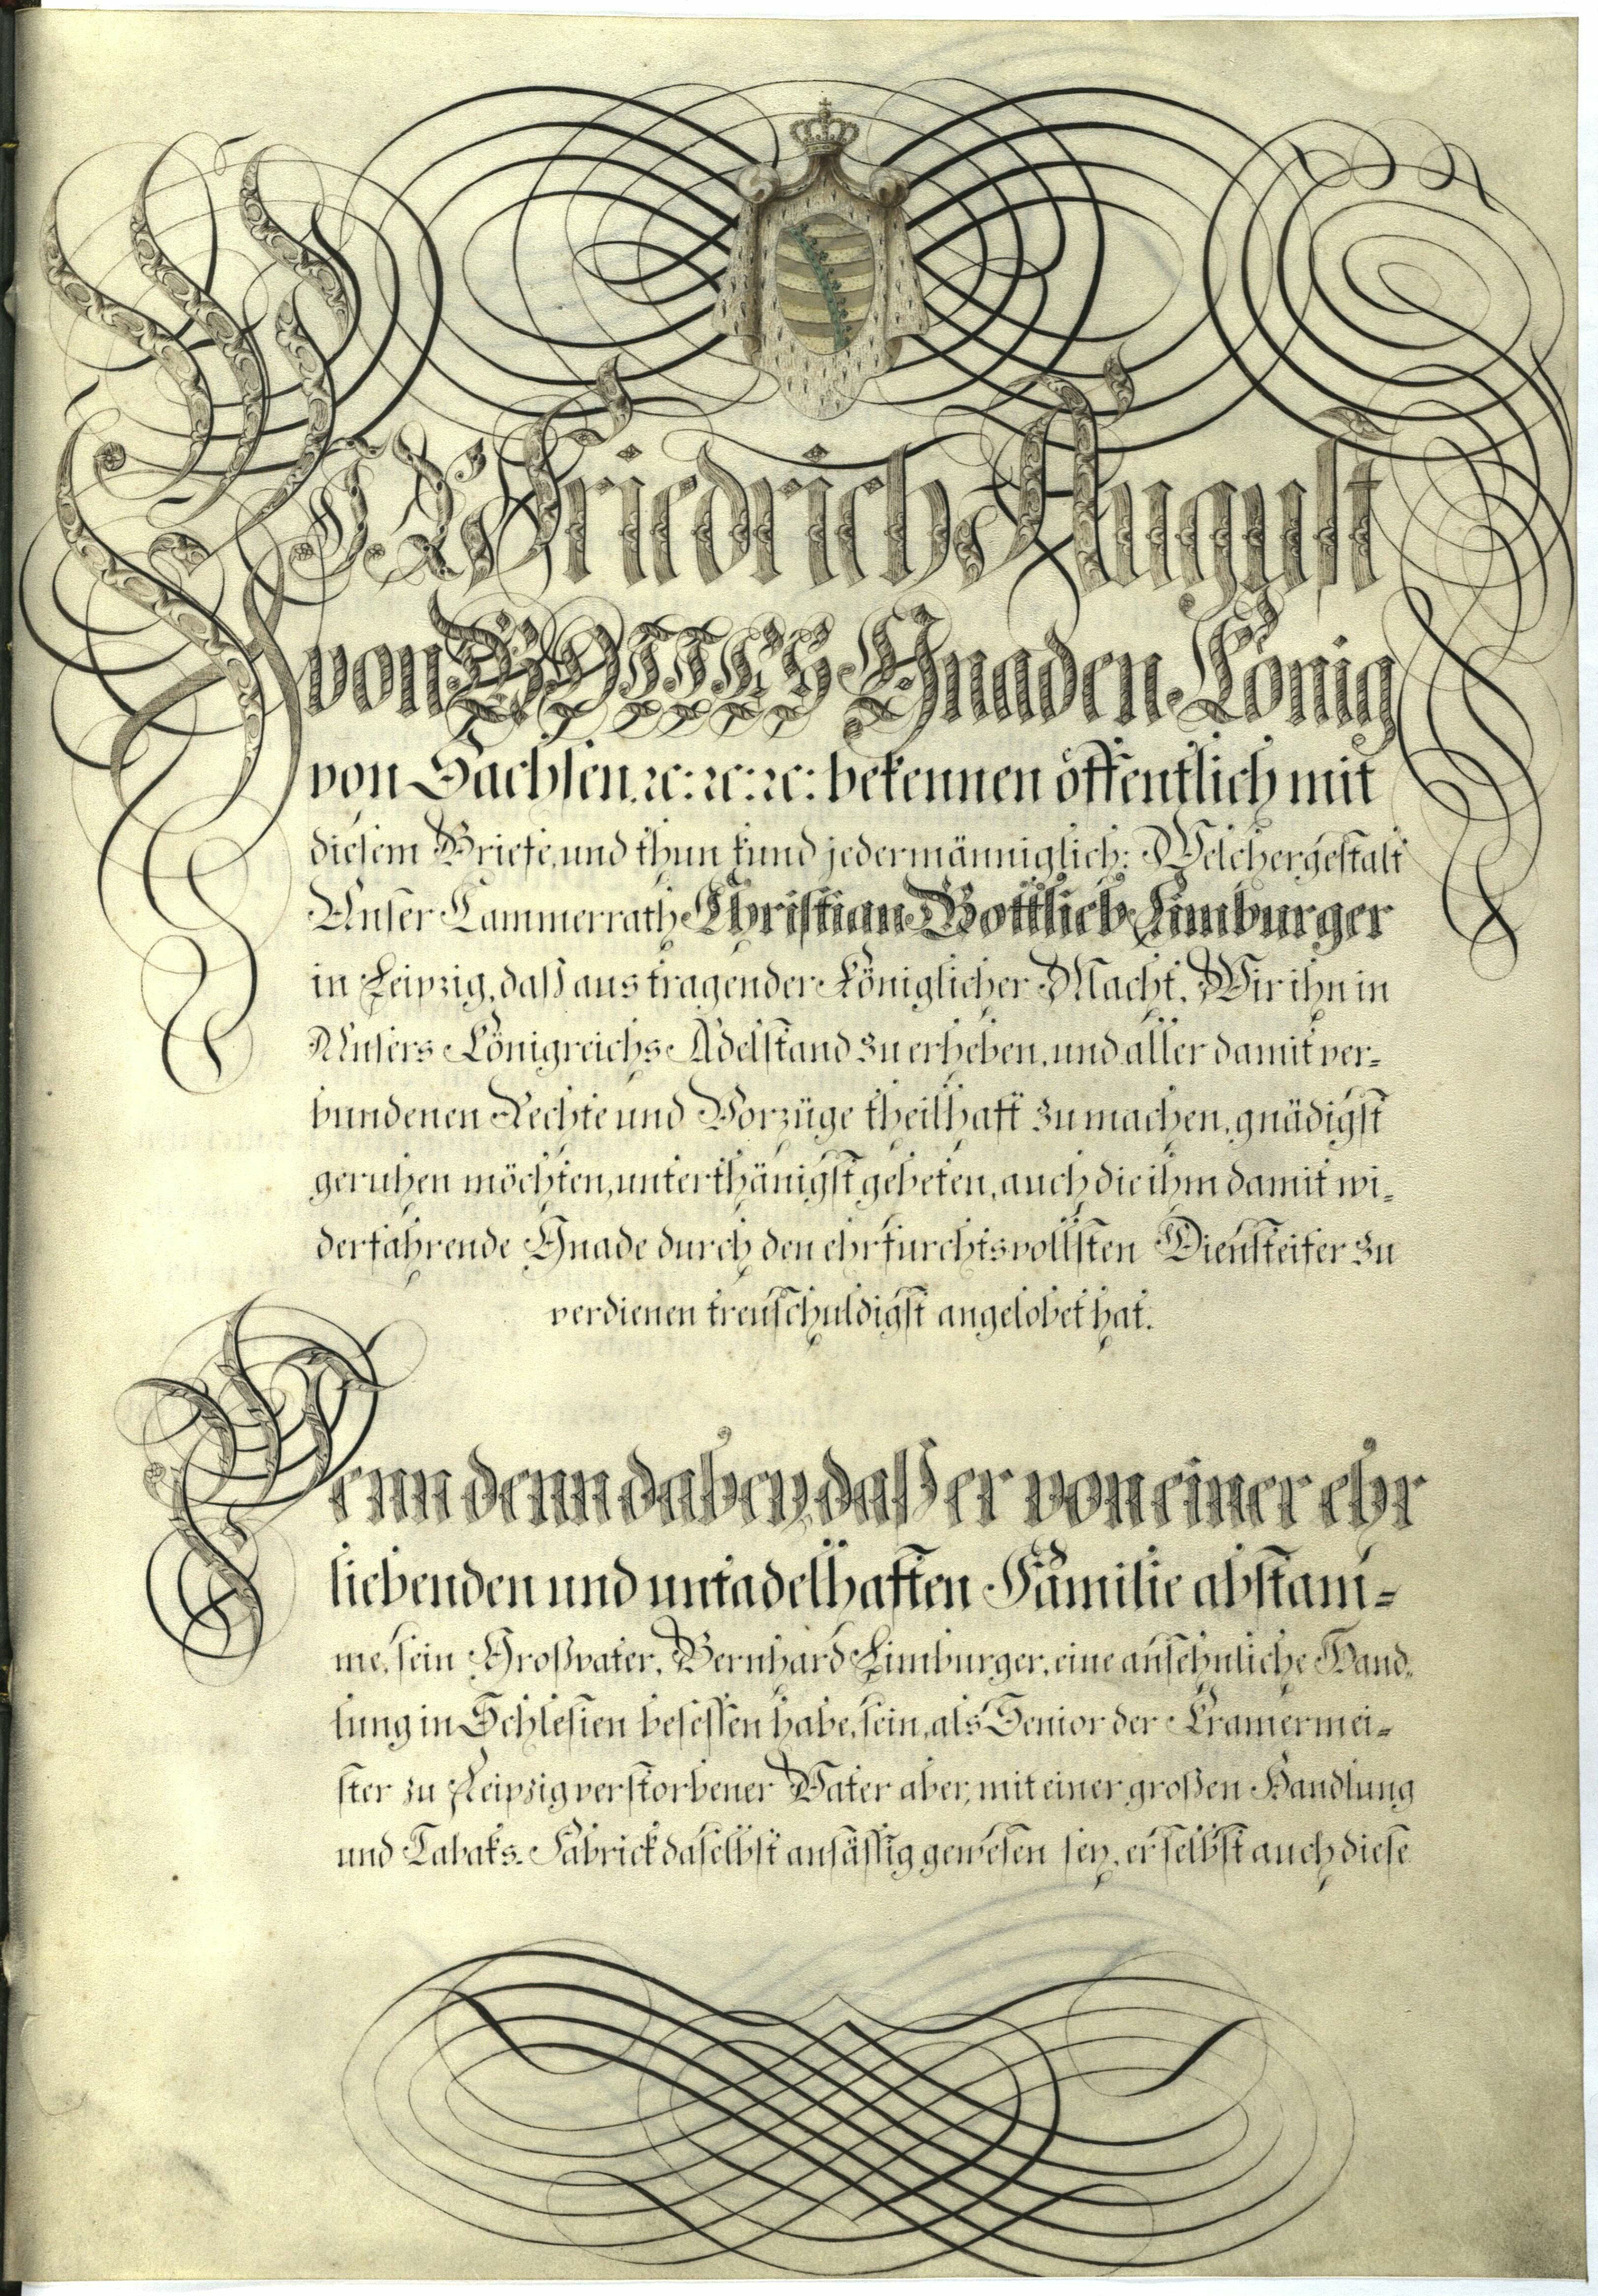 WIR Friedrich August
von GOTTES Gnaden König
von Sachsen. ꝛc: ꝛc: ꝛc: bekennen öffentlich mit
diesem Briefe, und thun kund jedermänniglich: Welchergestalt
Unser Cammerrath Christian Gottlieb Limburger
in Leipzig, daß aus tragender Königlicher Macht, Wir ihn in
Unsers Königreichs Adelstand zu erheben, und aller damit ver=
bundenen Rechte und Vorzüge theilhaft zu machen, gnädigst
geruhen möchten, unterthänigst gebeten, auch die ihm damit wi=
derfahrende Gnade durch den ehrfurchtsvollsten Diensteifer zu
verdienen treuschuldigst angelobet hat.
Wenn denn dabey, daß er von einer ehr
liebenden und untadelhaften Familie abstam=
me, sein Großvater, Bernhard Limburger, eine ansehnliche Hand=
lung in Schlesien besessen habe, sein, als Senior der Kramermei=
ster zu Leipzig verstorbener Vater aber, mit einer großen Handlung
und Tabaks-Fabrick daselbst ansässig gewesen sey, er selbst auch diese